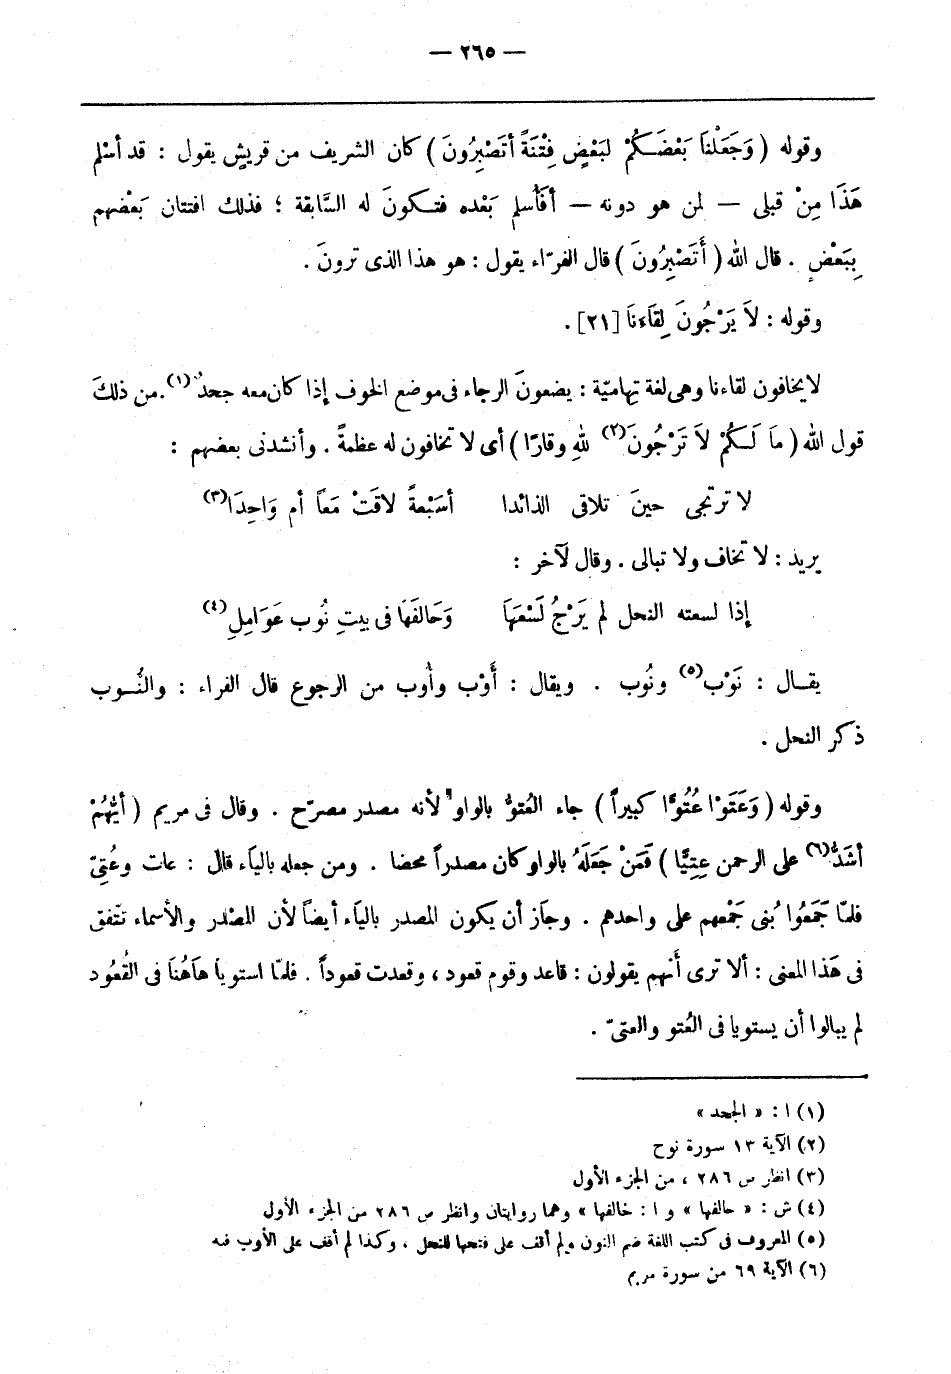 — ٢٦٥ —
وقوله ( وَجَعَلْنَا بَعْضَكُمْ لبَعْضٍ فِتْنَةً أتَصْبِرُونَ ) كان الشريف من قريشٍ يقول : قد أسْلم
هَذَا مِنْ قبلى — لمن هو دونه — أفَأُسلم بَعْده فتكونَ له السَّابقة ؛ فذلك افتتان بَعْضهم
بِبَعْضٍ . قال الله ( أَتَصْبِرُونَ ) قال الفرّاء يقول : هو هذا الذى ترونَ .
وقوله : لاَ يَرْجُونَ لِقَاءَنَا [٢١] .
لا يخافون لقاءنا وهى لغة تِهاميّة : يضعونَ الرجاء فى موضع الخوف إذا كان معه جحدٌ(١) . من ذلكَ
قول الله ( مَا لَكُمْ لاَ تَرْجُونَ(٢) للهِ وقارًا ) أى لا تخافون له عظمةً . وأنشدنى بعضهم :
لا ترتجى حينَ تلاقى الذائدا أسَبْعةً لاقَتْ مَعاً أم وَاحِدَا(٣)
يريد : لا تخاف ولا تبالى . وقال لآخر :
إذا لسعته النحل لم يَرْجُ لَسْعَهَا وَحَالَفَهَا فى بيتِ نُوب عَوَامِلِ(٤)
يقـال : نَوْب(٥) ونُوب . ويقال : أَوْب وأُوب من الرجوع قال الفراء : والنُّـوب
ذكر النحل .
وقوله ( وَعَتَوْا عُتُوًّا كبيراً ) جاء العُتوُّ بالواو لأنه مصدر مصرّح . وقال فى مريم ( أيُّهُمْ
أشَدُّ(٦) على الرحمن عِتِيًّا ) فَمَنْ جَعَلَهُ بالواو كان مصدراً محضا . ومن جعله بالياء قال : عات وعُتِىّ
فلمّا جَمَعُوا بُنى جَمْعهم على واحدهم . وجاز أن يكون المصدر بالياء أيضاً لأن المصْدر والأسماء تتّفق
فى هَذا المعنى : ألا ترى أنهم يقولون : قاعد وقوم قعود ، وقعدت قعوداً . فلمّا استويا هاهُنَا فى القُعُود
لم يبالوا أن يستويا فى العُتو والعتىّ .
(١) ا : « الجحد »
(٢) الآية ١٣ سورة نوح
(٣) انظر ص ٢٨٦ ، من الجزء الأول
(٤) ش : « حالفها » و ا : خالفها » وهما روايتان وانظر ص ٢٨٦ من الجزء الأول
(٥) المعروف فى كتب اللغة ضم النون ولم أقف على فتحها للنحل ، وكذا لم أقف على الأوب فيه
(٦) الآية ٦٩ من سورة مريم